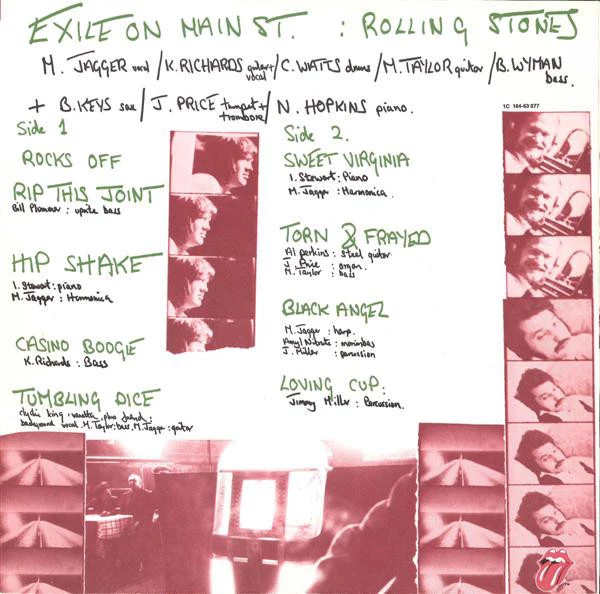 EXILE ON MAIN ST. : ROLLING STONES
M. JAGGER vocal / K. RICHARDS guitar + vocal / C. WATTS drums / M. TAYLOR guitar / B. WYMAN bass.
+ B. KEYS sax / J. PRICE trumpet + trombone / N. HOPKINS piano.
1C 164-63 077
Side 1
ROCKS OFF
RIP THIS JOINT
Bill Plummer : uprite bass
HIP SHAKE
I. Stewart : piano
M. Jagger : Harmonica
CASINO BOOGIE
K. Richards : Bass
TUMBLING DICE
clydie king : vanetta plus friend :
background vocal. M. Taylor : bass, M. Jagger : guitar
Side 2.
SWEET VIRGINIA
I. Stewart : Piano
M. Jagger : Harmonica.
TORN & FRAYED
Al perkins : steel guitar
J. Price : organ.
M. Taylor : bass
BLACK ANGEL
M. Jagger : harp.
Amyl Nitrate : marimbas
J. Miller : percussion
LOVING CUP.
Jimmy Miller : Percussion.